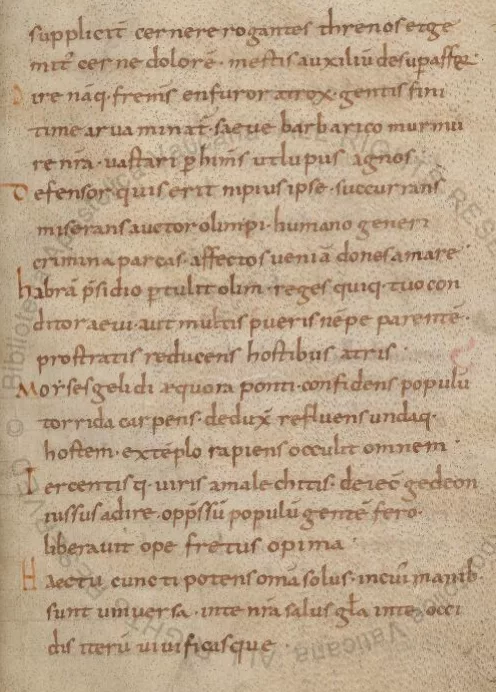 suppliciť cernere rogantes threnos et ge
mit' cerne dolorē · mestis auxiliū desup̱ affer·
Dire nāq· fremis en furor atrox· gentis fini
time arua minat᷑· saeue barbarico murmu
re nr̄a· vastari p̱himī s ut lupus agnos·
Defensor quis erit ni pius ipse· succurrans
miserans auctor olimpi· humano generi
crimina parcas· affectos ueniā dones amare·
habrā p̄sidio p̱tulit olim· reges quiq· tuo con
ditor aeui· aut multis pueris nēpe parentē·
prostratis reducens hostibus atris·
Moyses gelidi aequora ponti· confidens populū
torrida carpens· dedux̄ refluens undaq·
hostem· extēplo rapiens occulit omnem·
Tercentisq· uiris amalechitis· deiec̄ gedeon
iussus adire· opp̄ssū populū gente fero·
liberauit ope fretus opima·
Haec tu cuncti potens om̄a solus· in cui' manib·
sunt uniuersa· in te nr̄a salus gl̄a in te· occi
dis iterū uiuificasque·